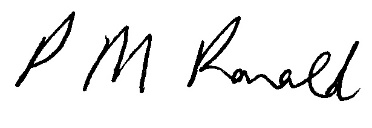 P M Ronald